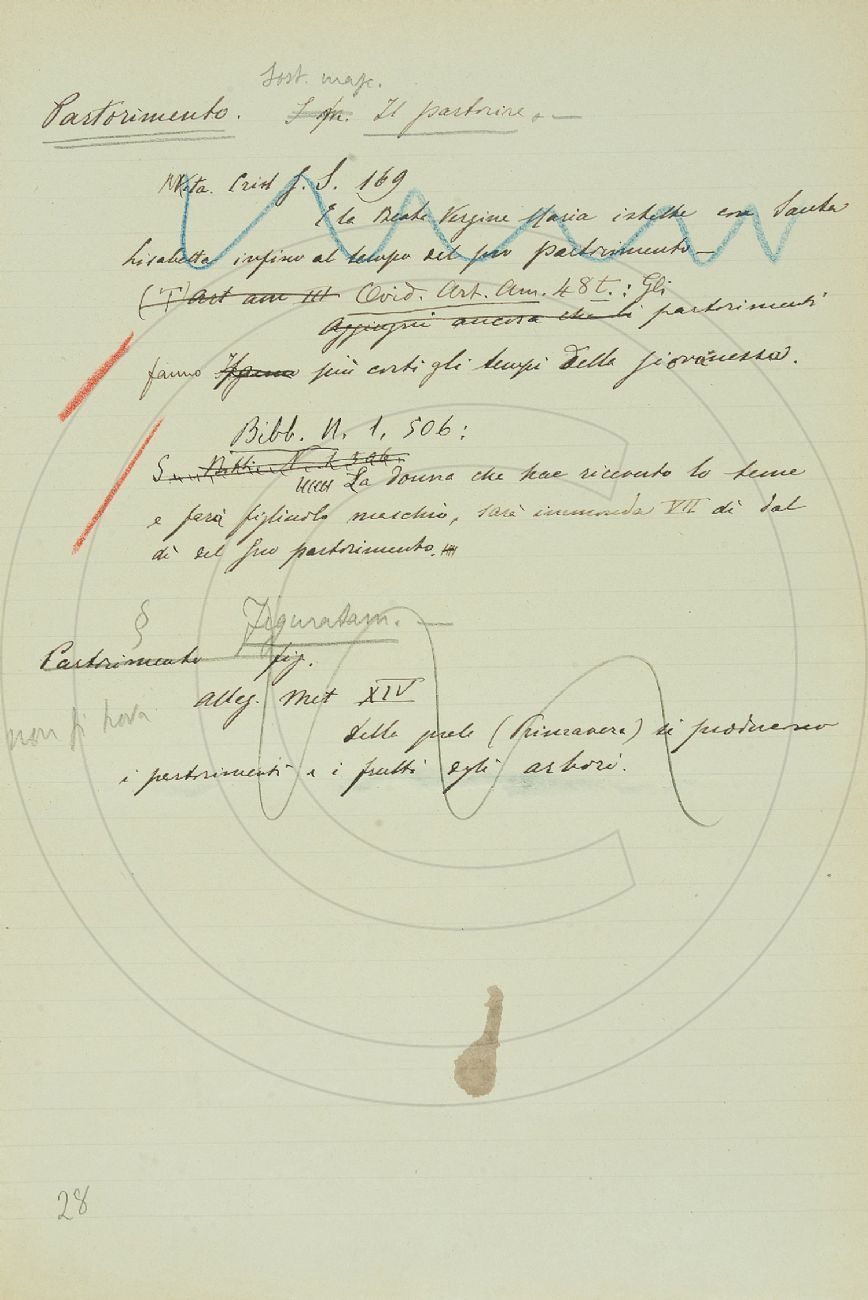 Sost. masc.
Partorimento. S. m. Il partorire. —
Vita. Crist J. S. 169
E la Beata Vergine Maria istette con Santa
Lisabetta infino al tempo del suo partorimento —
Art am III Ovid. Art. Am. 48t.: Gli
Aggiugni ancora che li partorimenti
fanno più corti gli tempi della giovanezza.
Bibb. N. 1, 506:
La donna che hae ricevuto lo seme
e farà figliuolo maschio, sarà immonda VII dì dal
dì del suo partorimento.
§ Figuratam. —
Partorimento fig.
Alleg. Met XIV
non si trova
della quale (Primavera) si producono
i partorimenti e i frutti degli arbori.
28